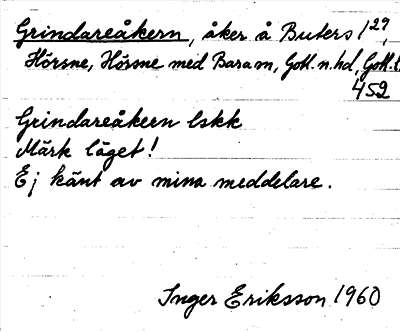 Grindareåkern, åker å Buters 1²⁹,
Hörsne, Hörsne med Bara sn, Gotl. n. hd, Gotl. l.
452
Grindareåkern lskk
Märk läget!
Ej känt av mina meddelare.
Inger Eriksson 1960